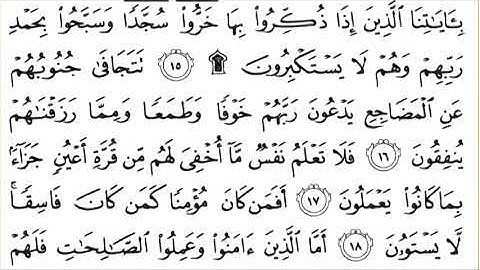 بِـَٔايَٰتِنَا ٱلَّذِينَ إِذَا ذُكِّرُوا۟ بِهَا خَرُّوا۟ سُجَّدًا وَسَبَّحُوا۟ بِحَمْدِ
رَبِّهِمْ وَهُمْ لَا يَسْتَكْبِرُونَ ۩ ١٥ تَتَجَافَىٰ جُنُوبُهُمْ
عَنِ ٱلْمَضَاجِعِ يَدْعُونَ رَبَّهُمْ خَوْفًا وَطَمَعًا وَمِمَّا رَزَقْنَٰهُمْ
يُنفِقُونَ ١٦ فَلَا تَعْلَمُ نَفْسٌ مَّآ أُخْفِىَ لَهُم مِّن قُرَّةِ أَعْيُنٍ جَزَآءًۢ
بِمَا كَانُوا۟ يَعْمَلُونَ ١٧ أَفَمَن كَانَ مُؤْمِنًا كَمَن كَانَ فَاسِقًا ۚ
لَّا يَسْتَوُۥنَ ١٨ أَمَّا ٱلَّذِينَ ءَامَنُوا۟ وَعَمِلُوا۟ ٱلصَّٰلِحَٰتِ فَلَهُمْ